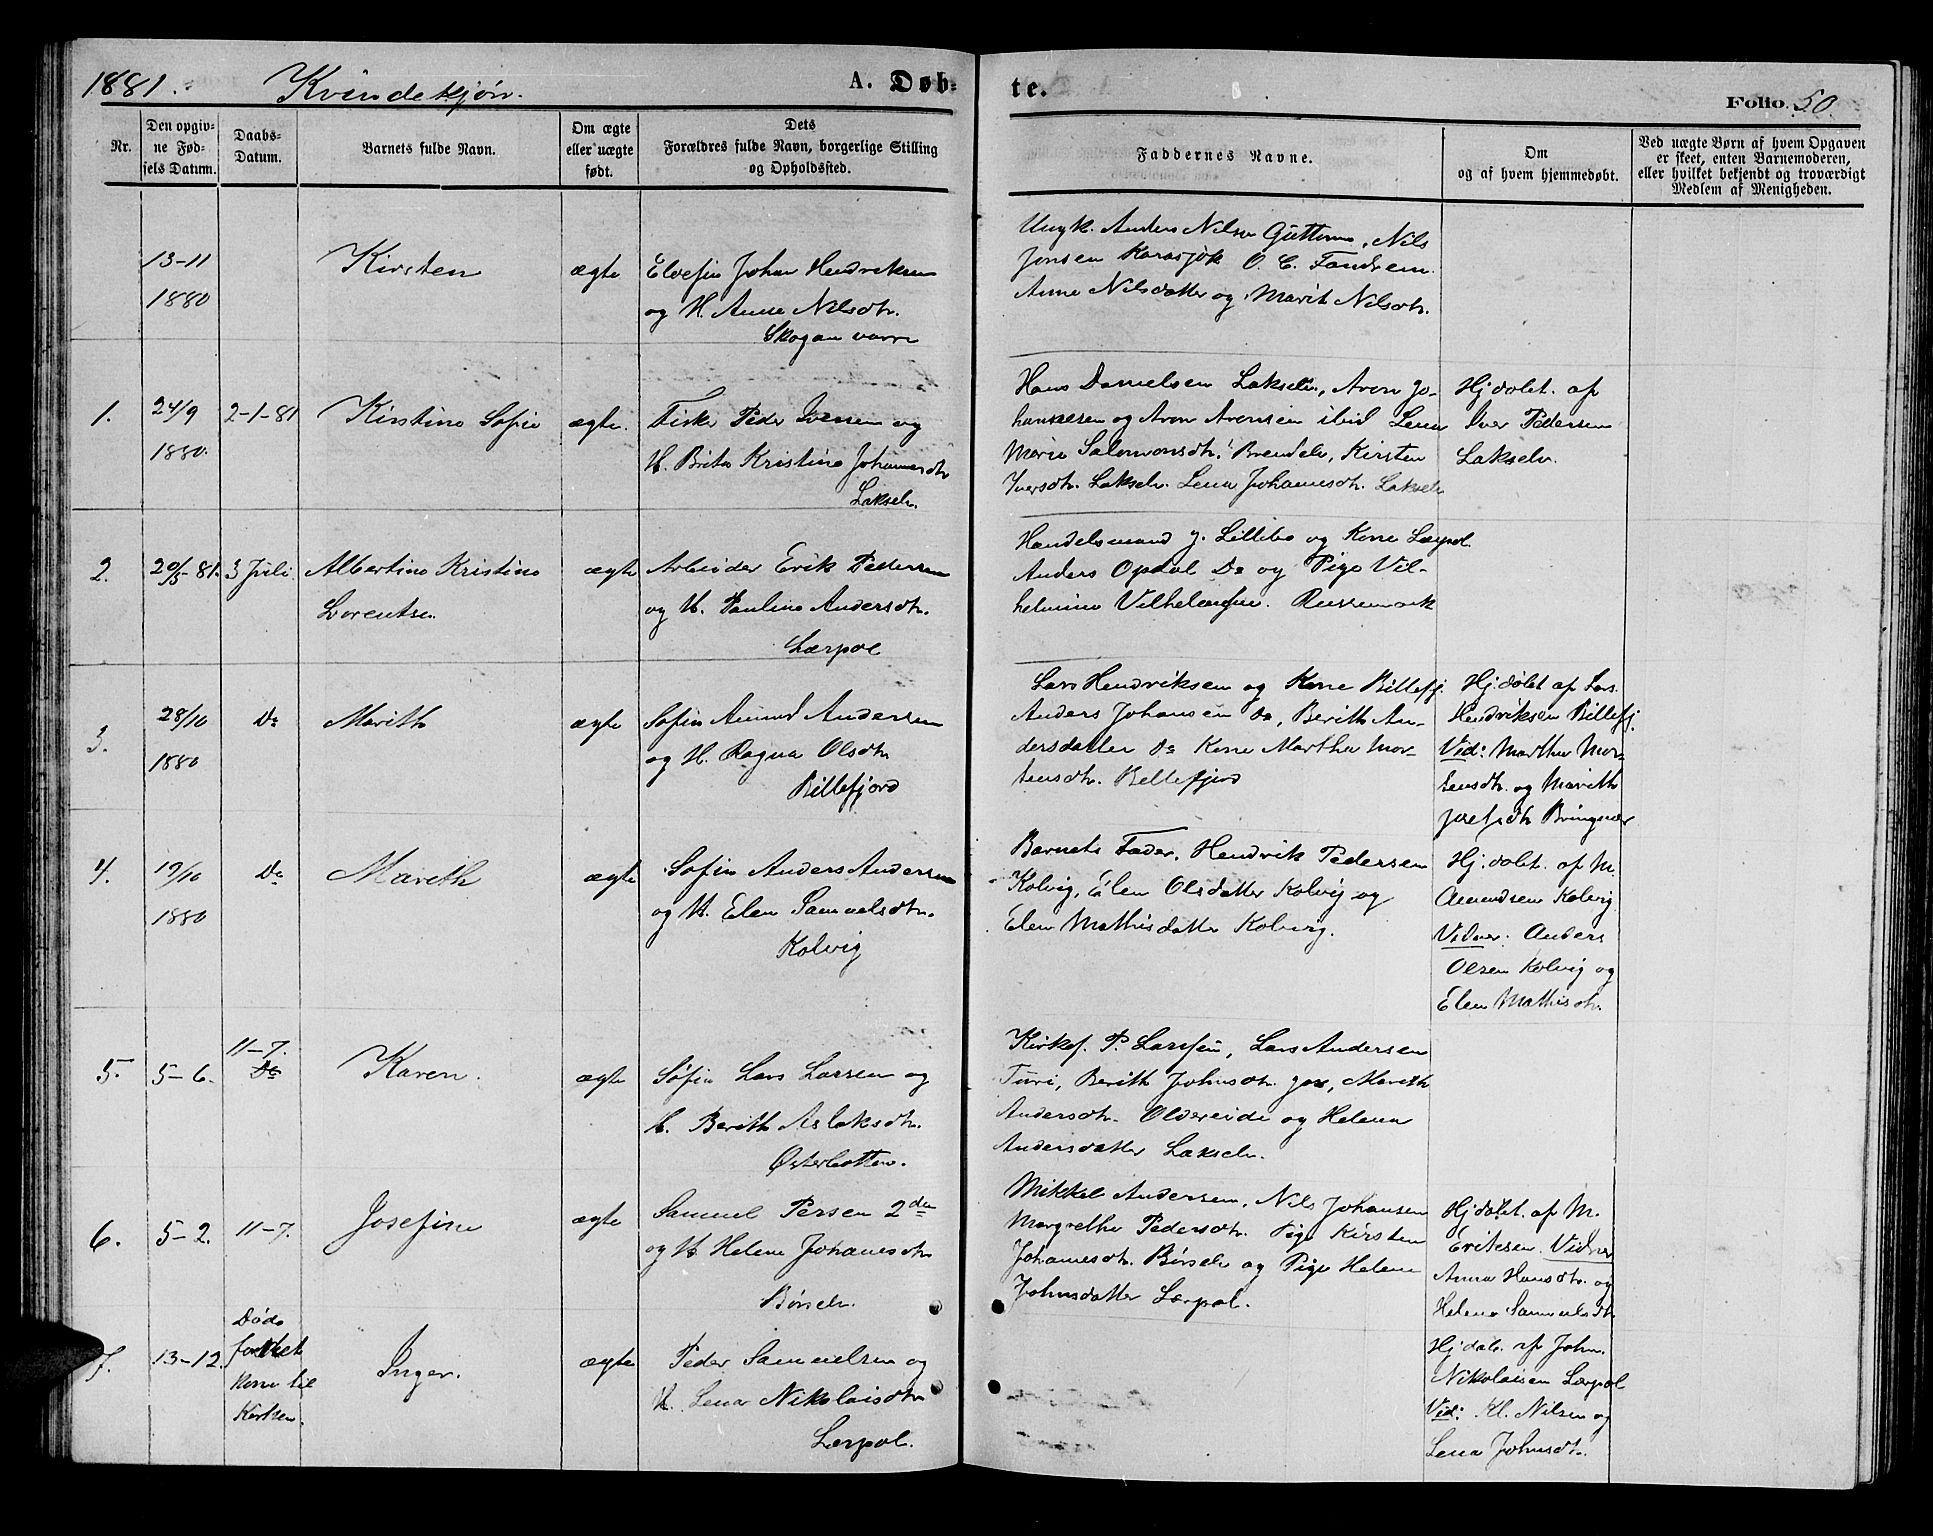 1881. Kvindekjøn. A. Døb-
te. Folio. 50.
Nr.
Den opgiv-
ne Fød-
sels Datum.
Daabs-
Datum.
Barnets fulde Navn.
Om ægte
eller uægte
født.
Dets
Forældres fulde Navn, borgerlige Stilling
og Opholdssted.
Faddernes Navne.
Om
og af hvem hjemmedøbt.
Ved uægte Børn af hvem Opgaven
er skeet, enten Barnemoderen,
eller hvilket bekjendt og troværdigt
Medlem af Menigheden.
13-11
1880
Kirsten
ægte
Elvefin Johan Hendriksen
og H. Anne Nilsdtr.
Skoganvarre
Ungk. Anders Nilsen Guttorm, Nils
Jonsen Karasjok O. C. Fandrem.
Anne Nilsdatter og Marit Nilsdtr.
1.
24/9
1880.
2-1-81
Kirstine Sofie
ægte.
Fisker Peder Iversen og
H. Brita Kristine Johannesdtr
Lakselv.
Hans Danielsen Lakselv, Aron Jo-
hannesen og Aron Aronsen ibid Lena
Marie Salomonsdtr. Brendelv, Kirsten
Iversdtr. Lakselv. Lena Johanesdtr. Lakselv
Hj.døbt. af
Iver Pedersen
Lakselv.
2.
20/5-81.
3 Juli
Albertine Kristine
Lorentse.
ægte
Arbeider Erik Pedersen
og H. Pauline Andersdtr.
Lærpol
Handelsmand J. Lillebo og Kone Lærpol.
Anders Opdal Do og Pige Vil-
helmine Vilhelmsen. Russemark
3.
28/10
1880
Do
Marith
ægte
Søfin Amund Andersen
og H. Ragna Olsdtr.
Billefjord
Lars Hendriksen og Kone Billefj.
Anders Johansen do, Berith An-
dersdatter do Kone Marthe Mor-
tensdtr. Billefjord
Hj.døbt af Lars
Hendriksen Billefj.
Vid: Marthe Mor-
tensdtr. og Marith
Josefsdtr Bringnes
4.
19/10
1880
Do
Marith
ægte
Søfin Anders Andersen
og H. Elen Samuelsdtr.
Kolvig
Barnets Fader, Hendrik Pedersen
Kolvig, Elen Olsdatter Kolvig og
Elen Mathisdatter Kolvig.
Hj.døbt. af M.
Amundsen Kolvig
Vidner: Anders
Olsen Kolvig og
Elen Mathisdtr.
5.
5-6.
11-7.
Do
Karen.
ægte
Søfin Lars Larsen og
H. Berith Aslaksdtr.
Østerbotten.
Kirkes. P. Larssen, Lars Andersen
Turi, Berith Johnsdtr. Marith
Andersdtr. Oldereide og Helena
Andersdatter Lakselv.
6.
5-2.
11-7.
Josefine
ægte
Samuel Persen 2den
og H. Helene Johanesdtr.
Børselv.
Mikkel Andersen, Nils Johansen
Margrethe Pedersdtr. Pige Kirsten
Johanesdtr. Børselv og Pige Helene
Johnsdatter Lærpol.
Hj.døbt. af M.
Eriksen. Vidner
Anna Hansdtr. og
Helena Samuelsdtr.
7.
13-12.
Døde
forend
komme til
Kirken.
Inger.
ægte
Peder Samuelsen og
H. Lena Nikolaisdtr
Lærpol.
Hj.døbt. af John
Nikolaisen Lærpol
Vid: Kl. Nilsen og
Lena Johnsdtr.